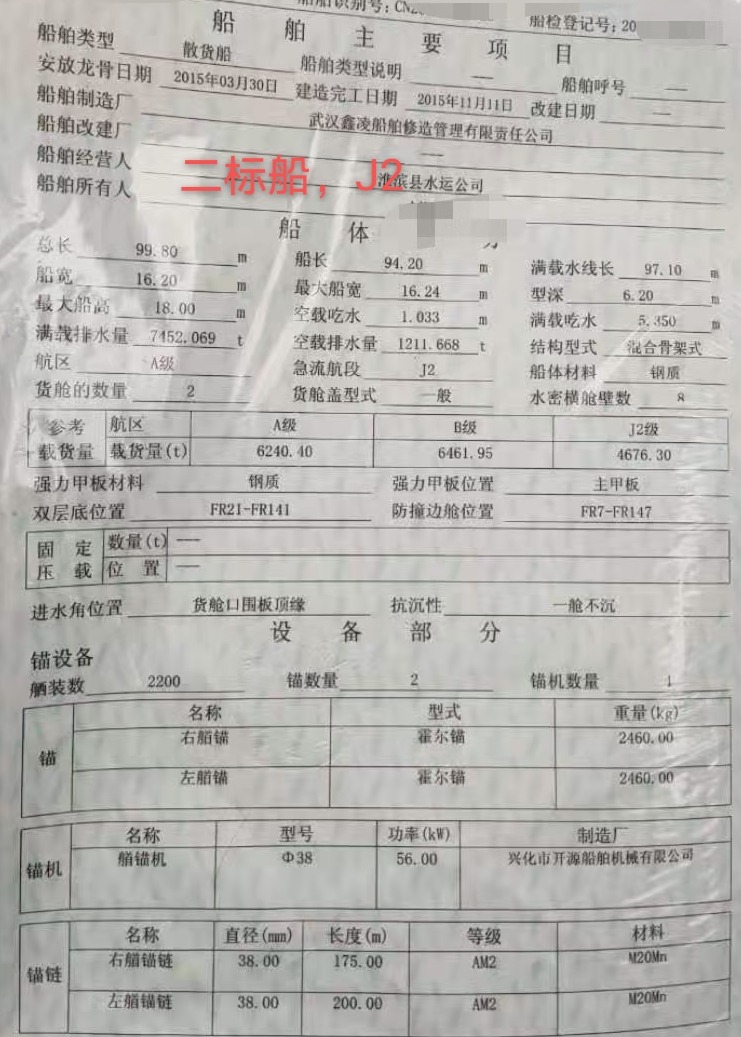 船舶识别号：CN20
船检登记号：20
船 舶 主 要 项 目
船舶类型 散货船 船舶类型说明 — 船舶呼号 —
安放龙骨日期 2015年03月30日 建造完工日期 2015年11月11日 改建日期 —
船舶制造厂 武汉鑫凌船舶修造管理有限责任公司
船舶改建厂 —
船舶经营人 淮滨县水运公司
二标船，J2
船舶所有人
船 体 分
总长 99.80 m 船长 94.20 m 满载水线长 97.10 m
船宽 16.20 m 最大船宽 16.24 m 型深 6.20 m
最大船高 18.00 m 空载吃水 1.033 m 满载吃水 5.350 m
满载排水量 7452.069 t 空载排水量 1211.668 t 结构型式 混合骨架式
航区 A级 急流航段 J2 船体材料 钢质
货舱的数量 2 货舱盖型式 一般 水密横舱壁数 8
参考 航区 A级 B级 J2级
载货量 载货量(t) 6240.40 6461.95 4676.30
强力甲板材料 钢质 强力甲板位置 主甲板
双层底位置 FR21-FR141 防撞边舱位置 FR7-FR147
固 定 数量(t) —
压 载 位 置 —
进水角位置 货舱口围板顶缘 抗沉性 一舱不沉
设 备 部 分
锚设备
舾装数 2200 锚数量 2 锚机数量 1
名称 型式 重量(kg)
锚 右艏锚 霍尔锚 2460.00
左艏锚 霍尔锚 2460.00
名称 型号 功率(kW) 制造厂
锚机 艏锚机 Φ38 56.00 兴化市开源船舶机械有限公司
名称 直径(mm) 长度(m) 等级 材料
锚链 右艏锚链 38.00 175.00 AM2 M20Mn
左艏锚链 38.00 200.00 AM2 M20Mn